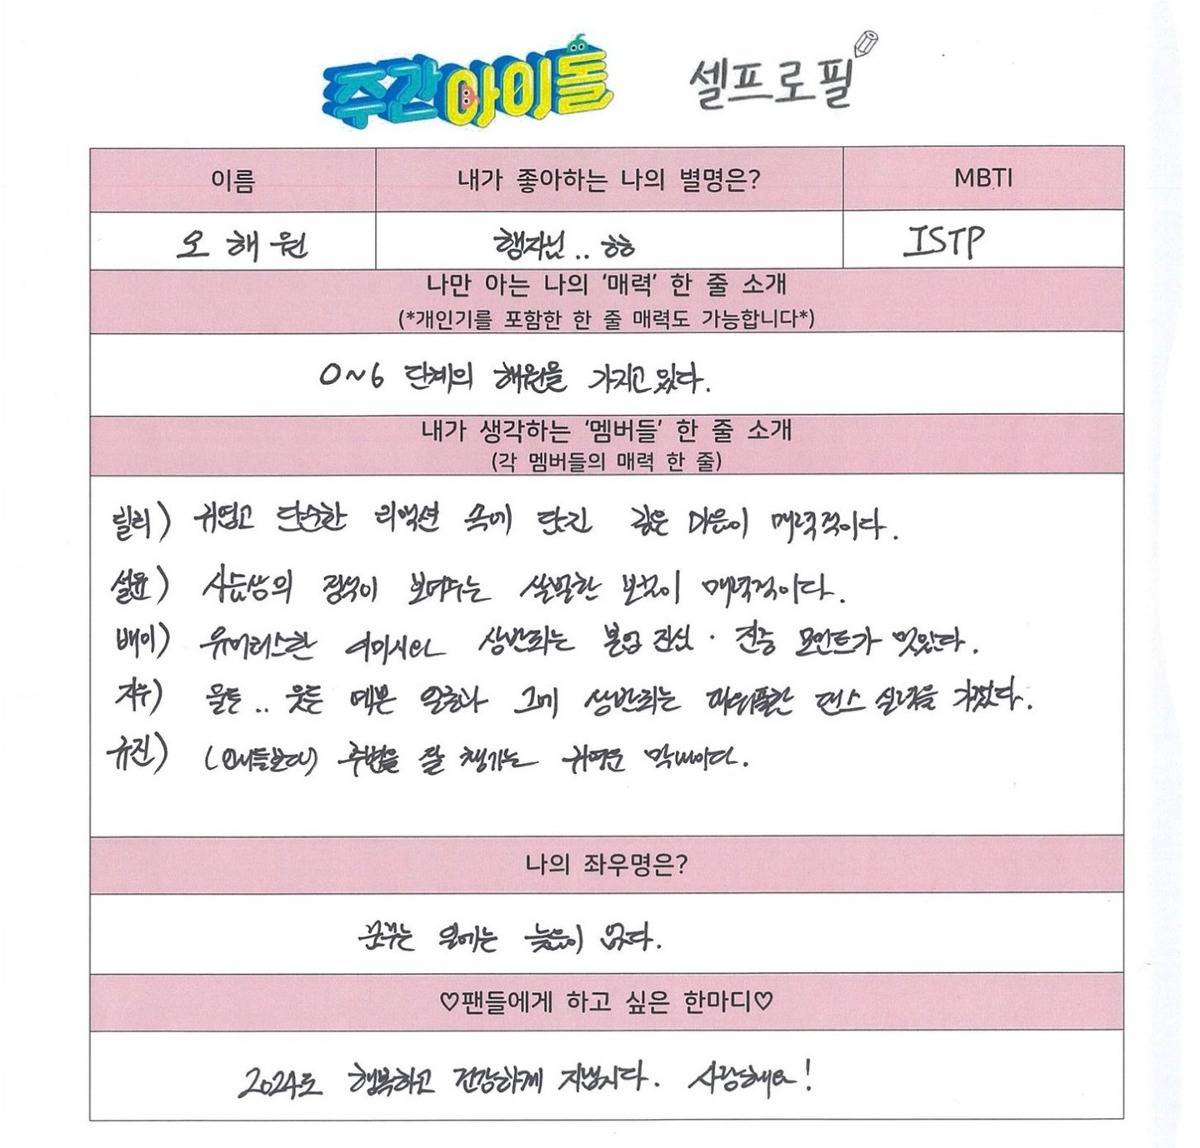 주간아이돌 셀프로필
이름 내가 좋아하는 나의 별명은? MBTI
오해원 행자님.. ㅎㅎ ISTP
나만 아는 나의 '매력' 한 줄 소개
(*개인기를 포함한 한 줄 매력도 가능합니다*)
0~6 단계의 해원을 가지고 있다.
내가 생각하는 '멤버들' 한 줄 소개
(각 멤버들의 매력 한 줄)
릴리) 귀엽고 단순한 리액션 속에 담긴 깊은 마음이 매력적이다.
설윤) 사슴상의 정석이 보여주는 살벌한 보컷이 매력적이다.
배이) 유머러스한 이미지와 상반되는 본업 진심·집중 모먼트가 멋있다.
지우) 울든.. 웃든 예쁜 얼굴과 그에 상반되는 파워풀한 댄스 실력을 가졌다.
규진) (언니들보다) 주변을 잘 챙기는 귀여운 막내이다.
나의 좌우명은?
모든 일에는 늦음이 없다.
♡팬들에게 하고 싶은 한마디♡
2024도 행복하고 건강하게 지냅시다. 사랑해요!